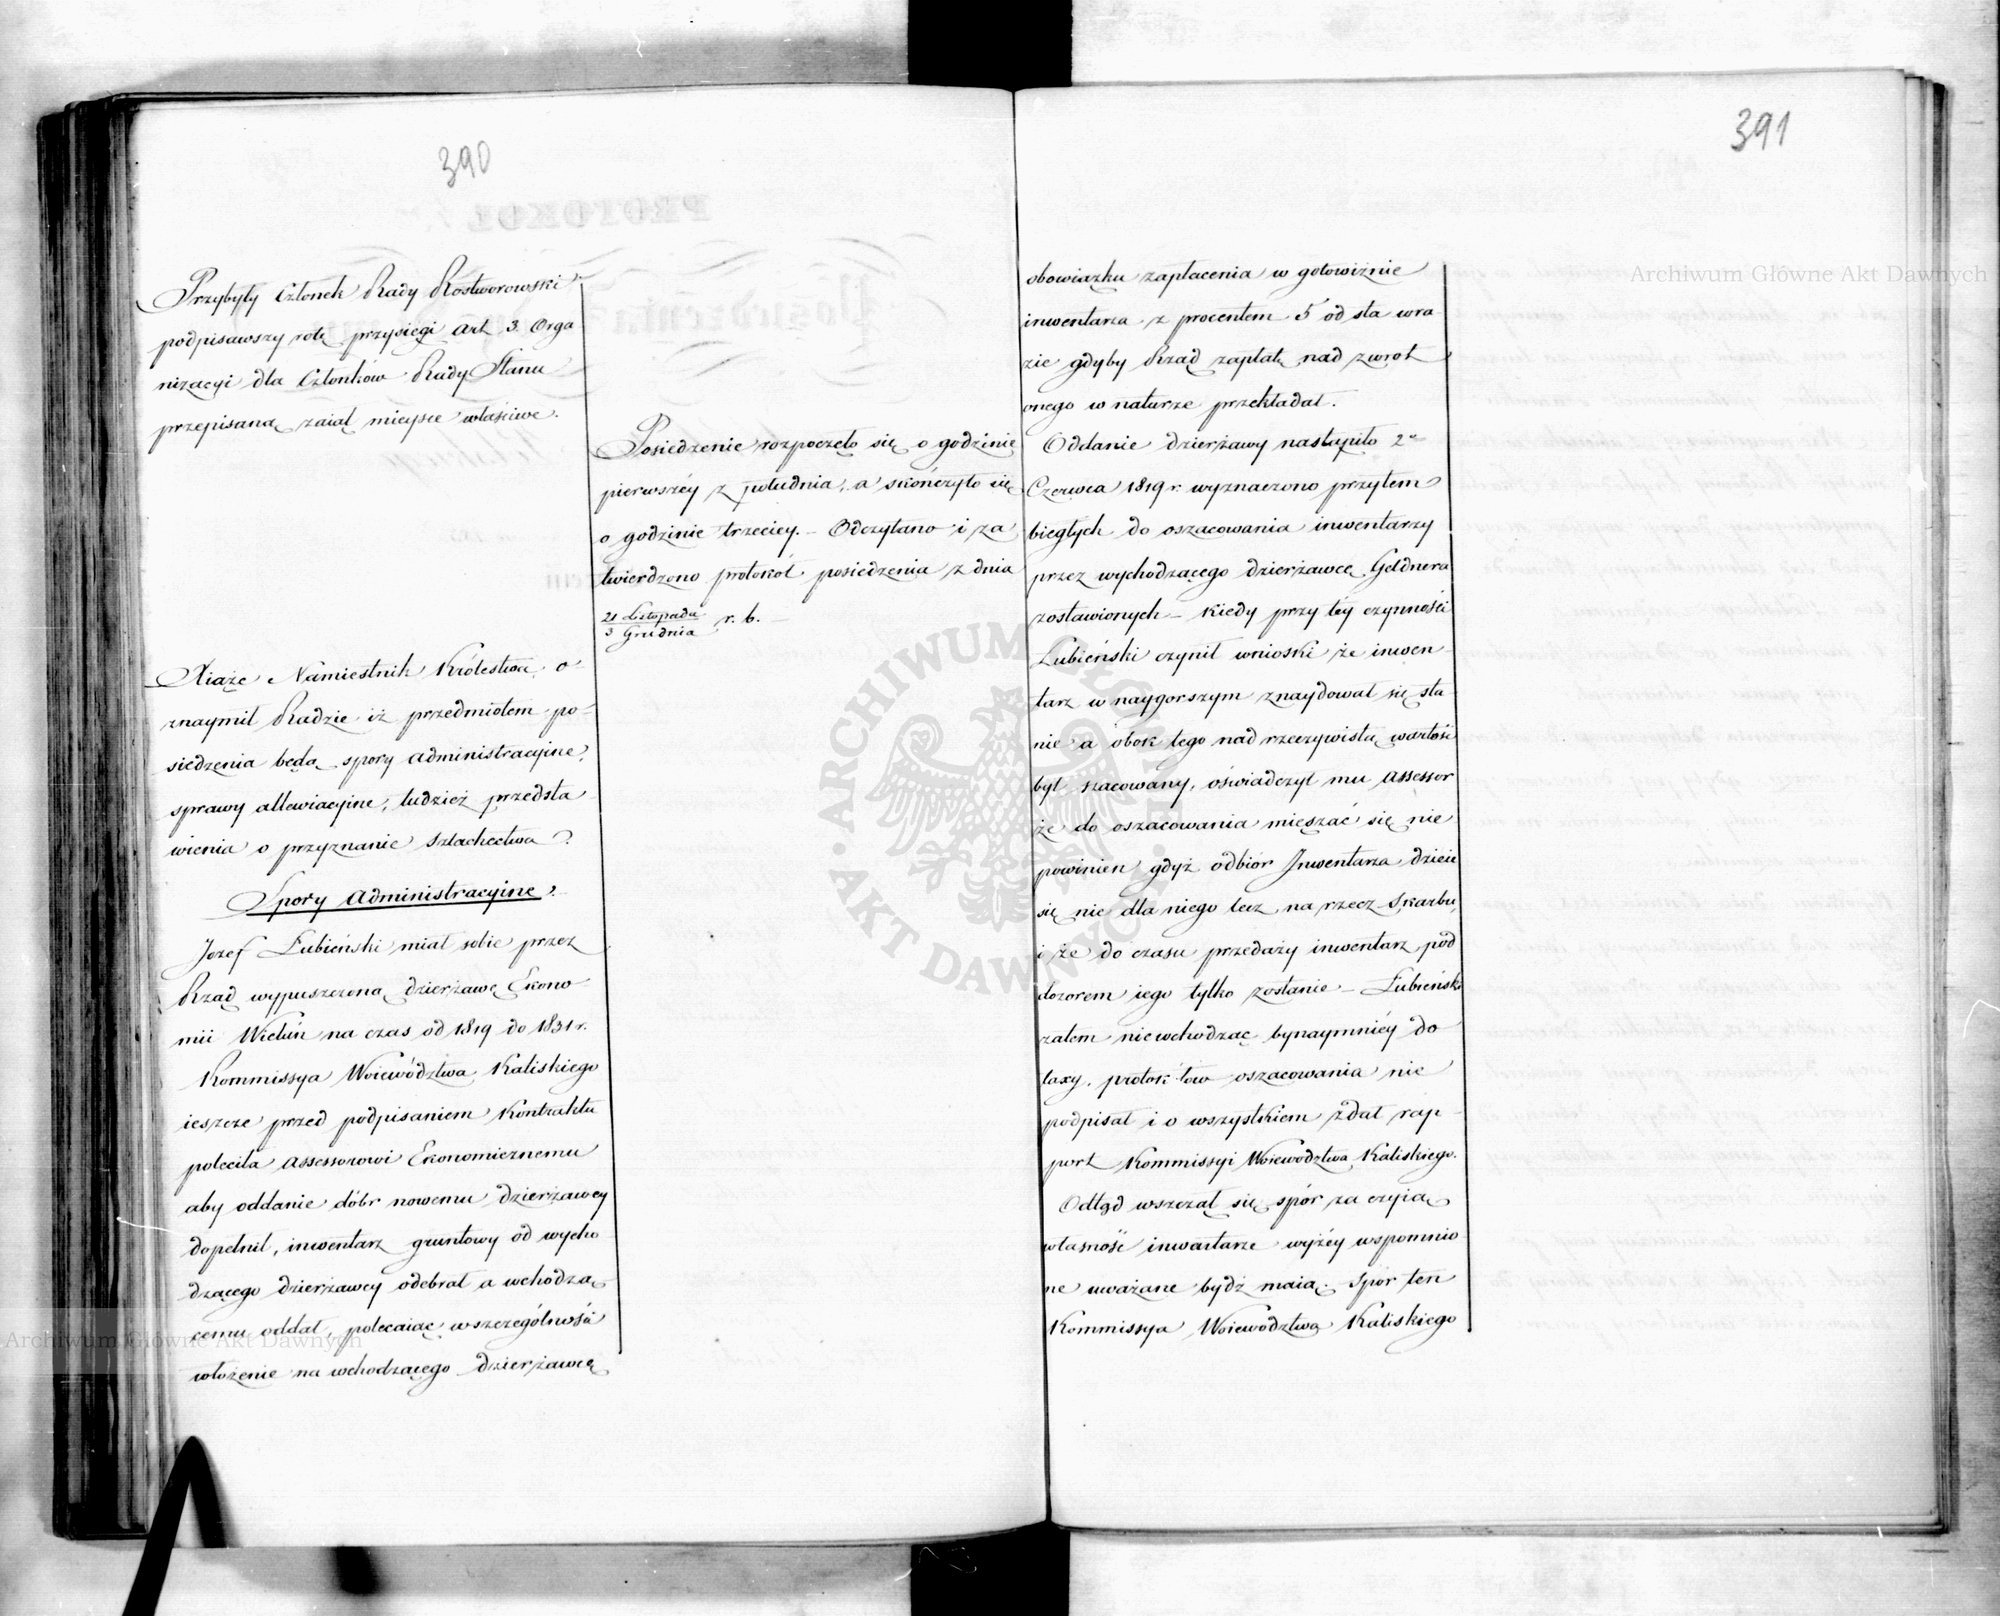 390
Przybyły Członek Rady Rostworowski
podpisawszy rotę przysięgi Art. 3. Orga
nizacyi dla Członków Rady Stanu
przepisaną zaiął mieysce właściwe.
Posiedzenie rozpoczęło się o godzinie
pierwszéy z południa, a skończyło się
o godzinie trzeciey. – Odczytano i za
twierdzono protokół posiedzenia z dnia
21 Listopada
3 Grudnia r. b. –
Xiąże Namiestnik Królestwa o-
znaymił Radzie iż przedmiotem po-
siedzenia będą spory administracyine,
sprawy allewiacyine, tudzież przedsta
wienia o przyznanie Szlachectwa.
Spory Administracyine.
Jozef Łubieński miał sobie przez
Rząd wypuszczoną dzierżawę Ekono-
mii Wieluń na czas od 1819 do 1831 r.
Kommissya Woiewództwa Kaliskiego
ieszcze przed podpisaniem Kontraktu
poleciła Assessorowi Ekonomicznemu
aby oddanie dóbr nowemu dzierżawcy
dopełnił, inwentarz gruntowy od wycho
dzącego dzierżawcy odebrał a wchodzą
cemu oddał, polecaiąc w szczególności
włożenie na wchodzącego dzierżawcę
391
obowiązku zapłacenia w gotowiźnie
inwentarza z procentem 5 od sta w ra
zie gdyby Rząd zapłatę nad zwrot
onego w naturze przekładał.
Oddanie dzierżawy nastąpiło 2º
Czerwca 1819 r. wyznaczono przytem
biegłych do oszacowania inwentarzy
przez wychodzącego dzierżawcę Geldnera
zostawionych – Kiedy przy téy czynności
Łubieński czynił wnioski że inwen-
tarz w naygorszym znaydował się sta
nie a obok tego nad rzeczywistą wartość
był szacowany, oświadczył mu Assessor
że do oszacowania mieszać się nie
powinien gdyż odbiór Inwentarza dzieie
się nie dla niego lecz na rzecz Skarbu,
i że do czasu przedaży inwentarz pod
dozorem iego tylko zostanie – Łubieński
zatem nie wchodząc bynaymniéy do
taxy, protokółow oszacowania nie
podpisał i o wszystkiem zdał rap-
port Kommissyi Woiewództwa Kaliskiego.
Odtąd wszczął się spór za czyią
własność inwentarze wyżéy wspomnio
ne uważane bydź maią. Spór ten
Kommissya Woiewództwa Kaliskiego
Archiwum Główne Akt Dawnych
Archiwum Główne Akt Dawnych
ARCHIWUM GŁÓWNE · AKT DAWNYCH ·